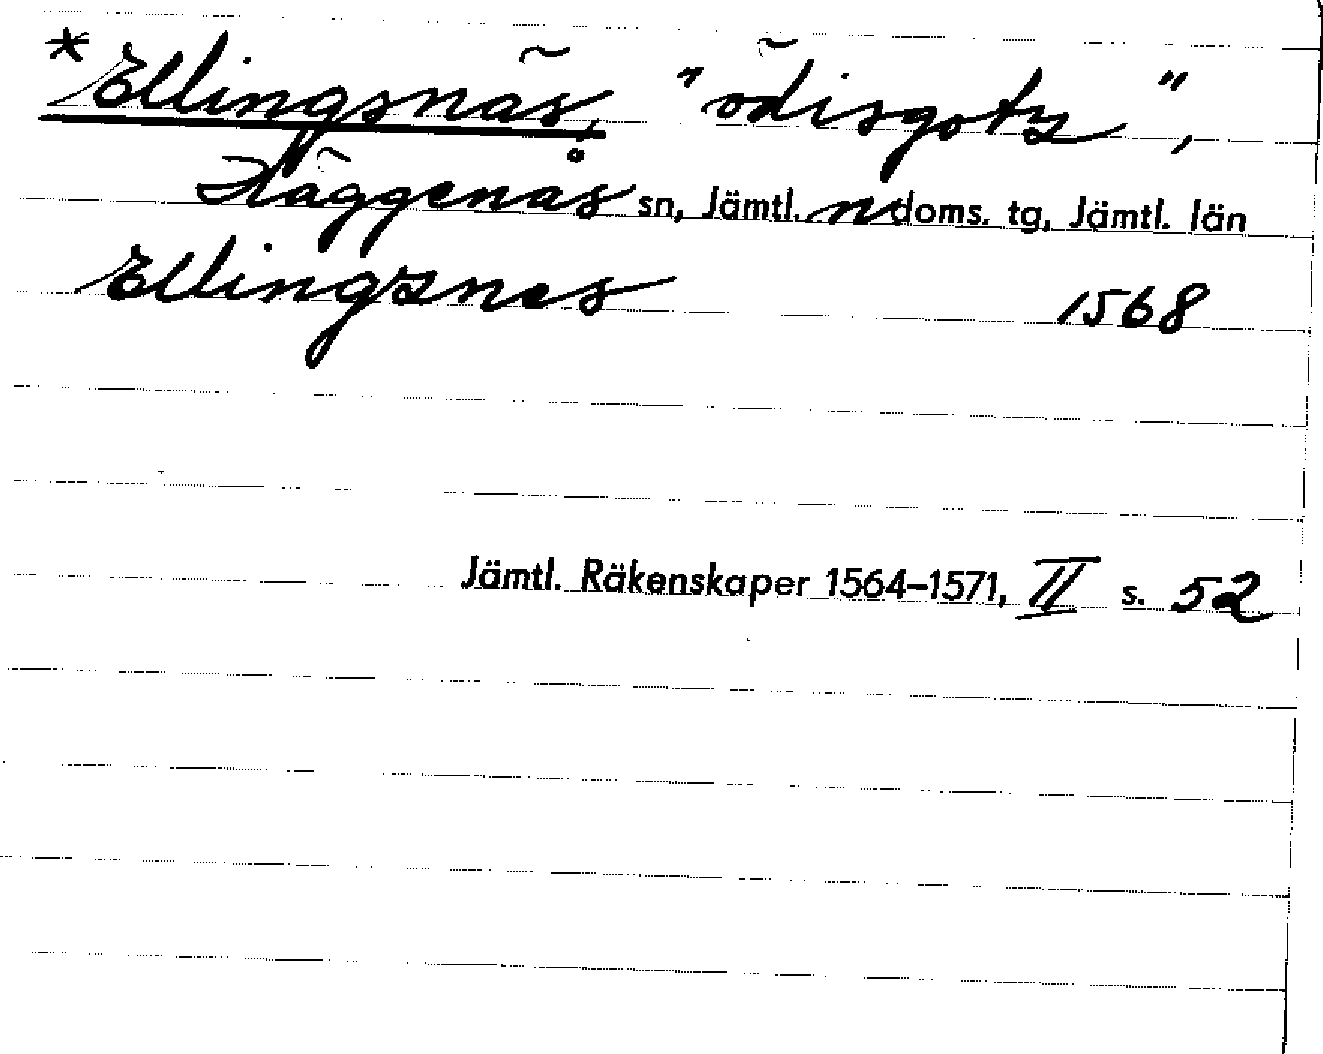 *Ellingsnäs, "ödisgotz",
Häggenås sn, Jämtl. n doms. tg, Jämtl. län
Ellingsnes 1568
Jämtl. Räkenskaper 1564–1571, II s. 52